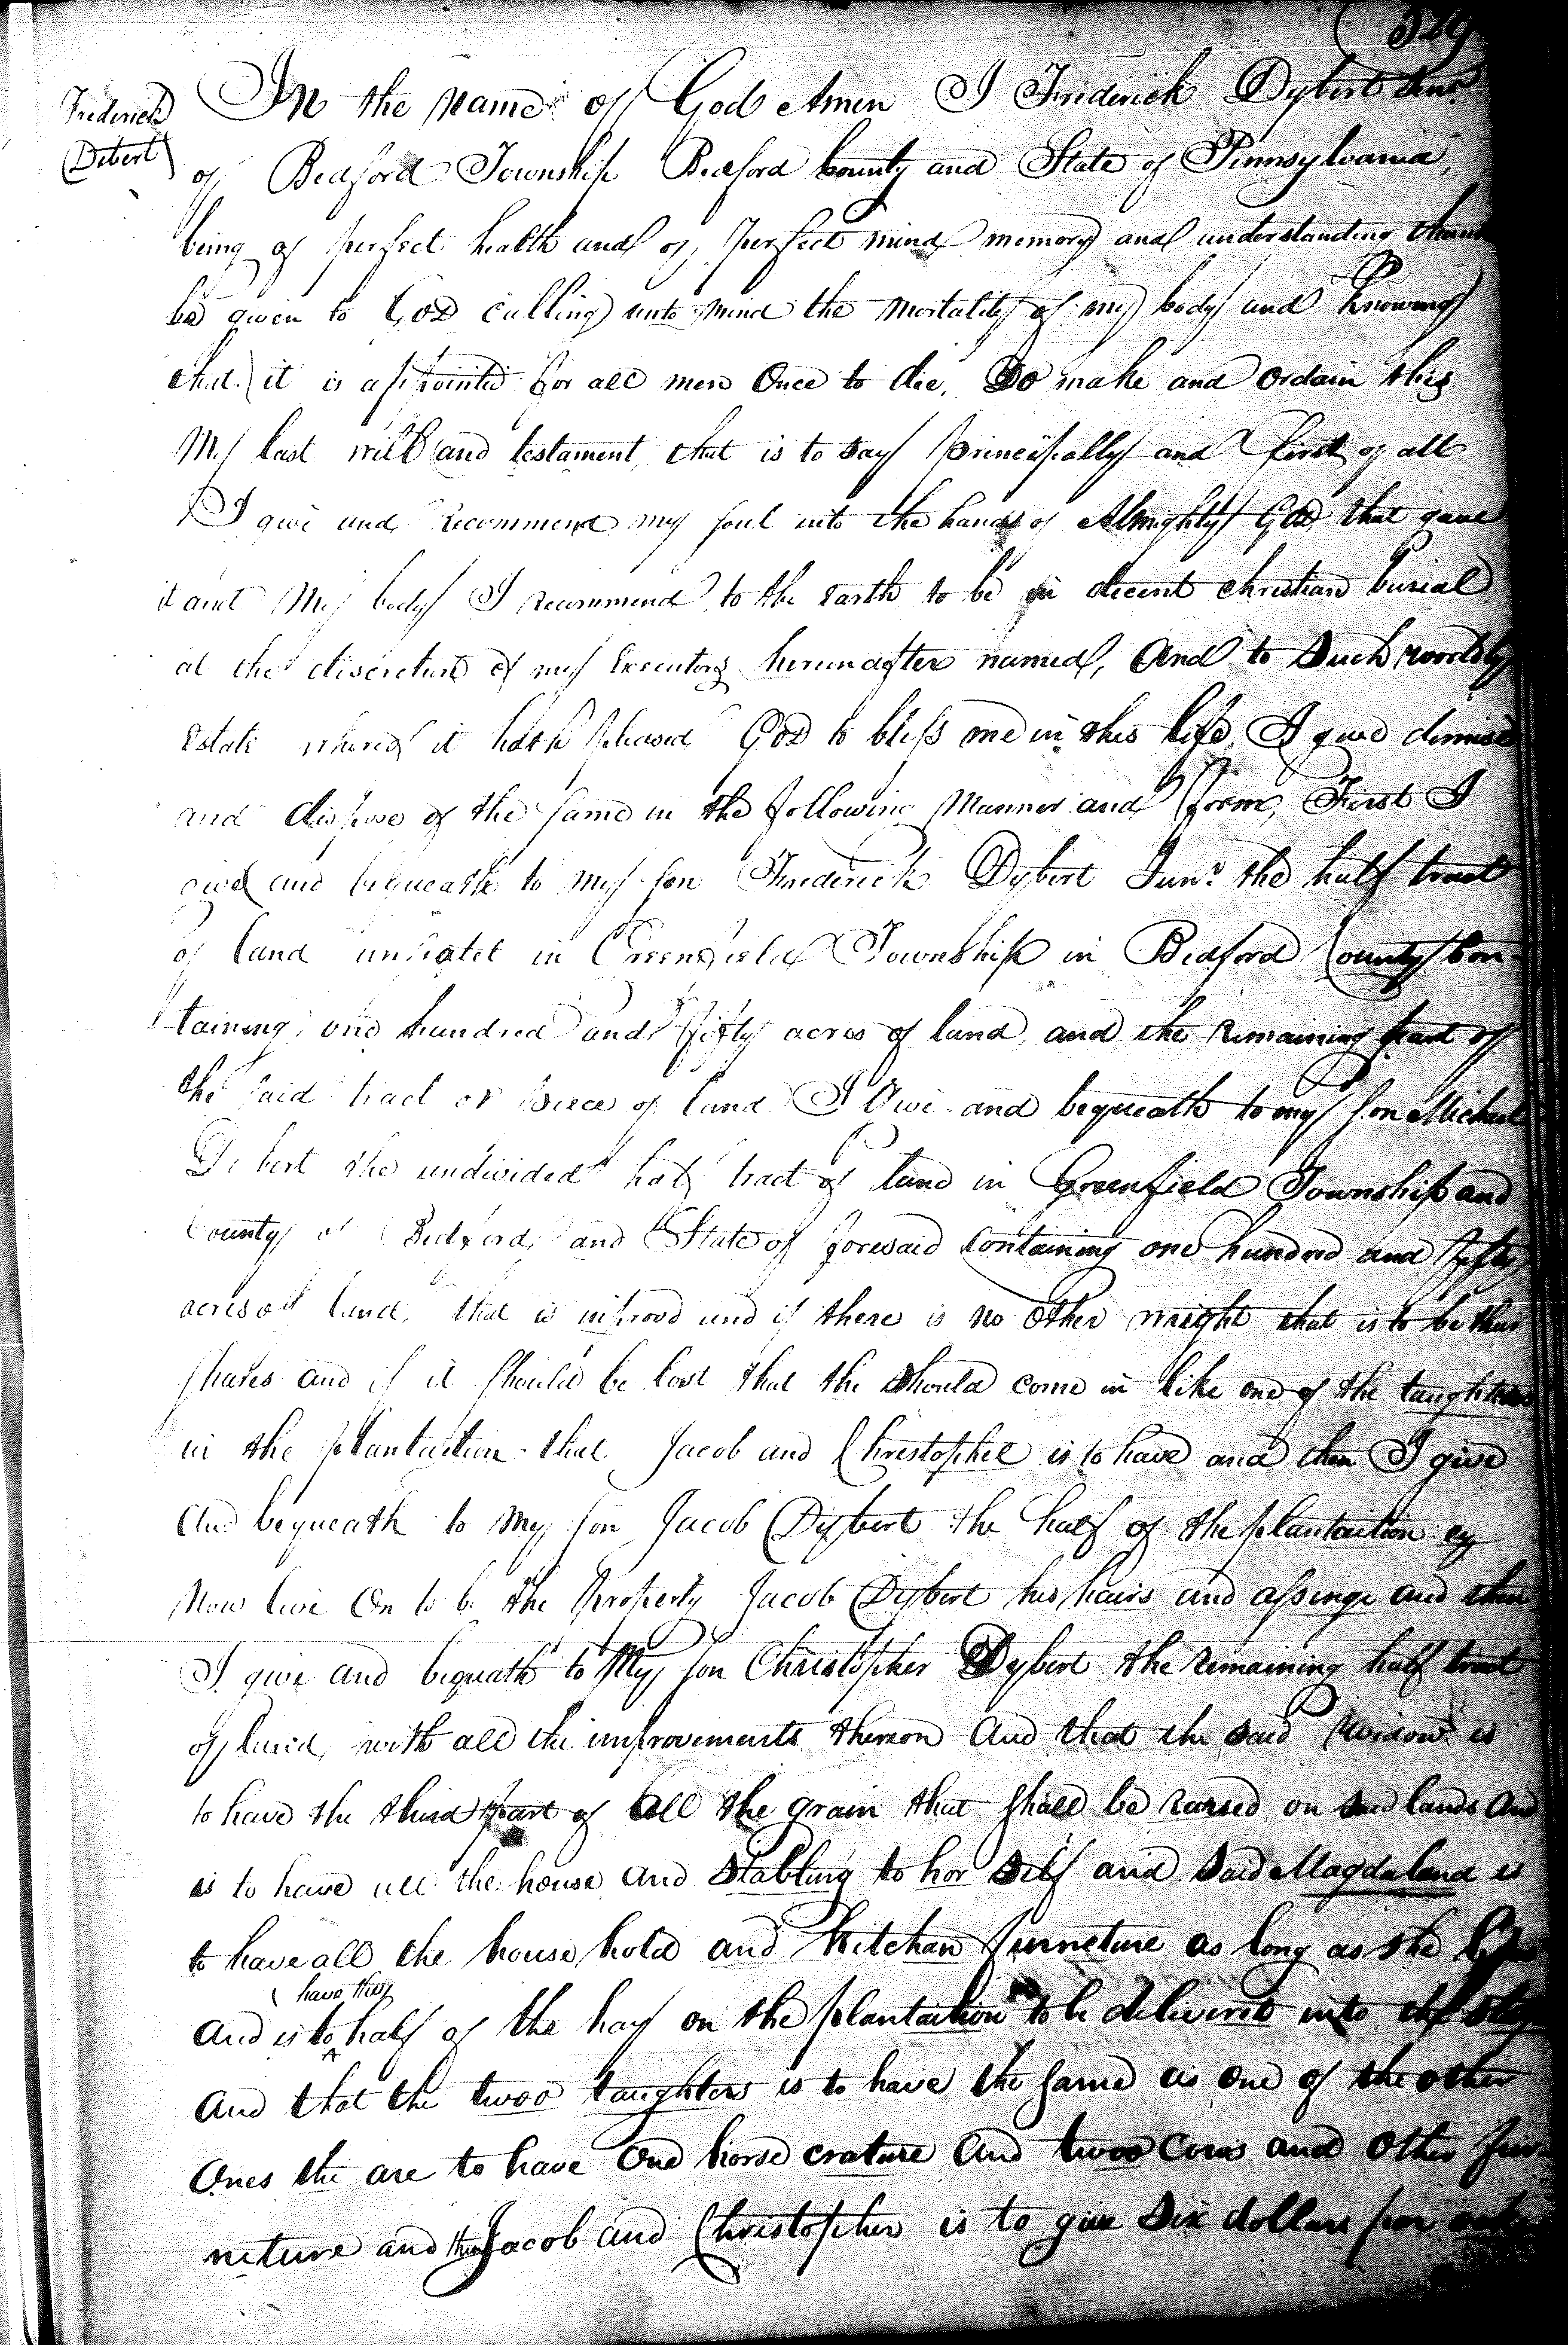 329
Frederick
Debert
In the name of God Amen I Friderick Dybert Senr
of Bedford Township Bedford County and State of Pennsylvania,
being of perfect health and of perfect mind memory and understanding thanks
be given to God calling unto mind the mortality of my body and knowing
that it is appointed for all men Once to die, Do make and ordain this
My last will and testament, that is to say principally and first of all
I give and Recommend my soul into the hands of Almighty God that gave
it and My body I recommend to the earth to be in decent christian burial
at the discretion of my Executors hereinafter named, And to Such worldly
Estate whereof it hath pleased God to bless me in this life I give demise
and dispose of the same in the following Manner and form, First I
give and bequeath to my son Frederick Dybert Junr the half tract
of land in Greenfield Township in Bedford County Con-
taining one hundred and fifty acres of land and the remaining part of
the said tract or piece of land I Give and bequeath to my son Michael
Dibert the undivided half tract of land in Greenfield Township and
County of Bedford and State of foresaid Containing one hundred and fifty
acres of land, that is improvd and if there is no Other wright that is to be their
shares and if it should be lost that the should come in like one of the taughters
in the plantaition that Jacob and Christophel is to have and then I give
And bequeath to My son Jacob Dybert the half of the plantaition ey
Now live On to be the Property Jacob Dybert his hairs and assinge and then
I give and bequath to My son Christopher Dybert the remaining half tract
of land, with all the improvements thereon And that the said Widow is
to have the third part of All the grain that shall be raised on said lands And
is to have all the house and Stabling to hor Self and Said Magdalena is
to have all the house hold and Kitchan furneture as long as she
have they
And is to half of the hay on the plantaition to be delivered into
And that the twoo taughters is to have the same as one of the other
Ones the are to have One horse crature And twoo Cows and Other fur-
niture and then Jacob and Christopher is to give Six dollars par